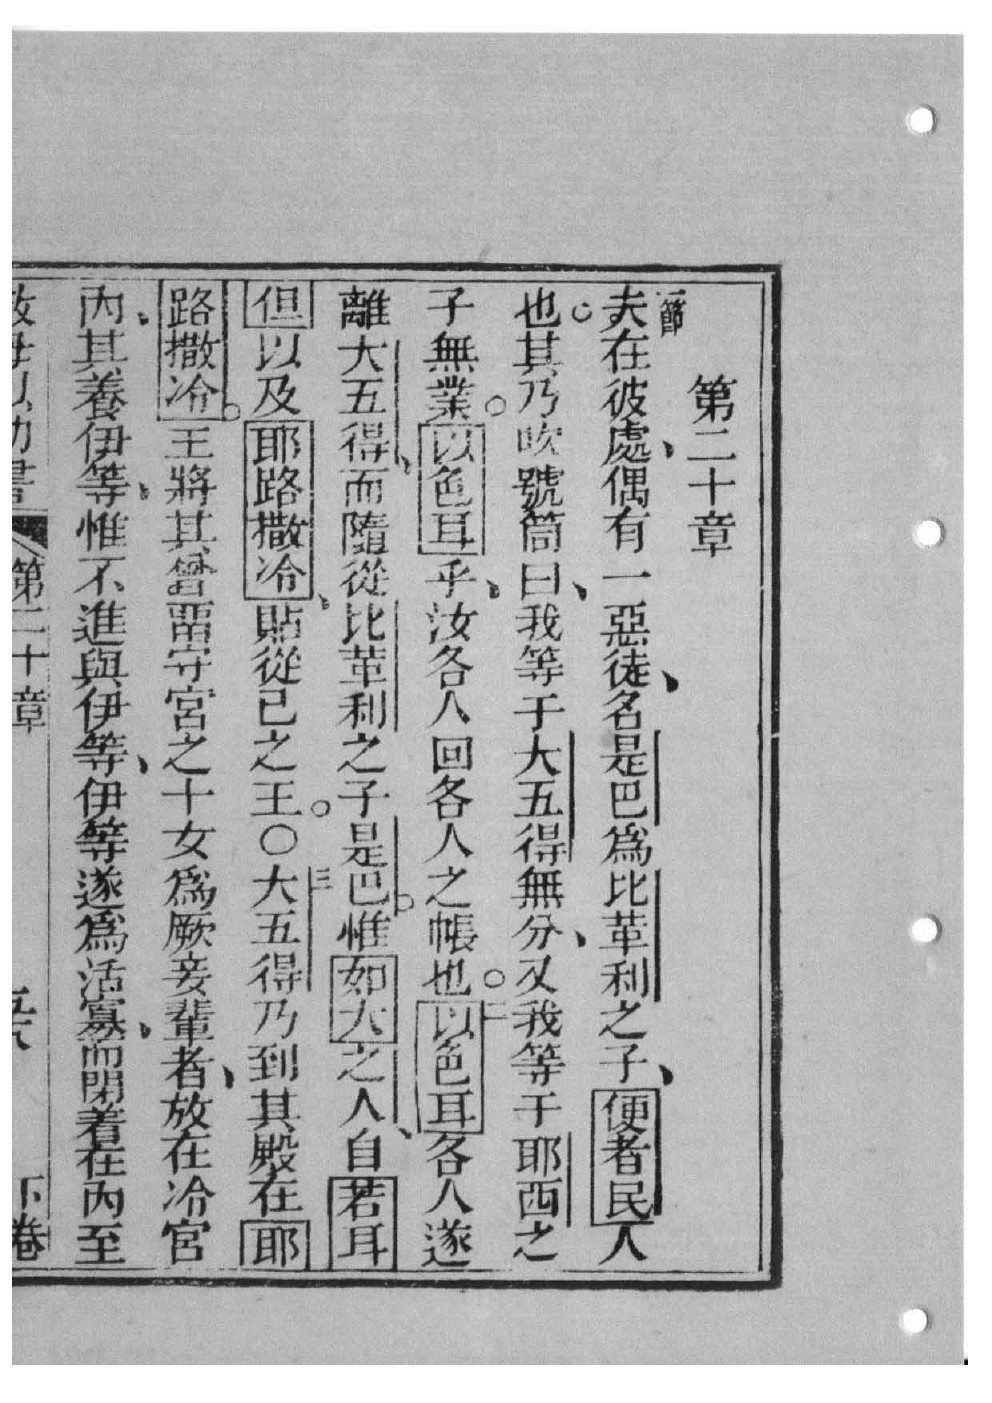 第二十章
一節
夫在彼處、偶有一惡徒、名是巴爲比革利之子、便者民人
也。其乃吹號筒曰、我等于大五得無分、又我等于耶西之
子無業。以色耳乎、汝各人回各人之帳也。二以色耳各人遂
離大五得、而隨從比革利之子是巴。惟如大之人、自若耳
但以及耶路撒冷、貼從己之王。〇三大五得乃到其殿在耶
路撒冷。王將其曾畱守宮之十女爲厥妾輩者、放在冷宮
內、其養伊等、惟不進與伊等、伊等遂爲活寡、而閉着在內至
第二十章
下卷